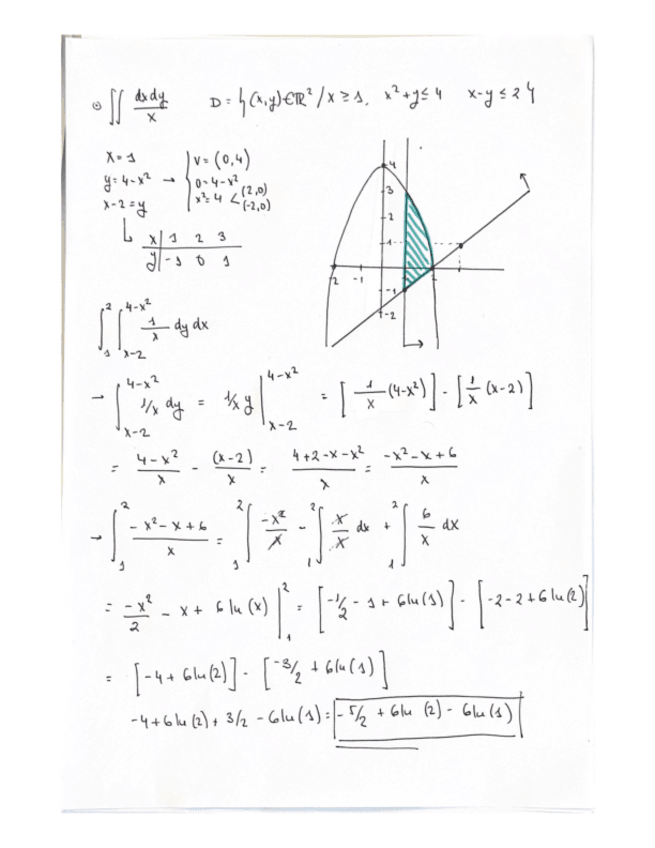 ⊙ ∬ dxdy/x D = {(x,y)∈ℝ² / x ≥ 1, x²+y ≤ 4 x-y ≤ 2}
x=1
y=4-x² →
x-2=y
V=(0,4)
0=4-x²
x²=4 < (2,0) (-2,0)
x | 1 2 3
y | -1 0 1
4
3
2
1
-2 -1
-1
-2
∫₁² ∫_{x-2}^{4-x²} 1/x dy dx
→ ∫_{x-2}^{4-x²} 1/x dy = 1/x y |_{x-2}^{4-x²} = [1/x (4-x²)] - [1/x (x-2)]
= (4-x²)/x - (x-2)/x = (4+2-x-x²)/x = (-x²-x+6)/x
→ ∫₁² (-x²-x+6)/x = ∫₁² -x²/x - ∫₁² x/x dx + ∫₁² 6/x dx
= -x²/2 - x + 6 ln(x) |₁² = [-1/2 - 1 + 6ln(1)] - [-2-2+6ln(2)]
= [-4+6ln(2)] - [-3/2 + 6ln(1)]
-4+6ln(2)+3/2 - 6ln(1) = -5/2 + 6ln (2) - 6ln(1)